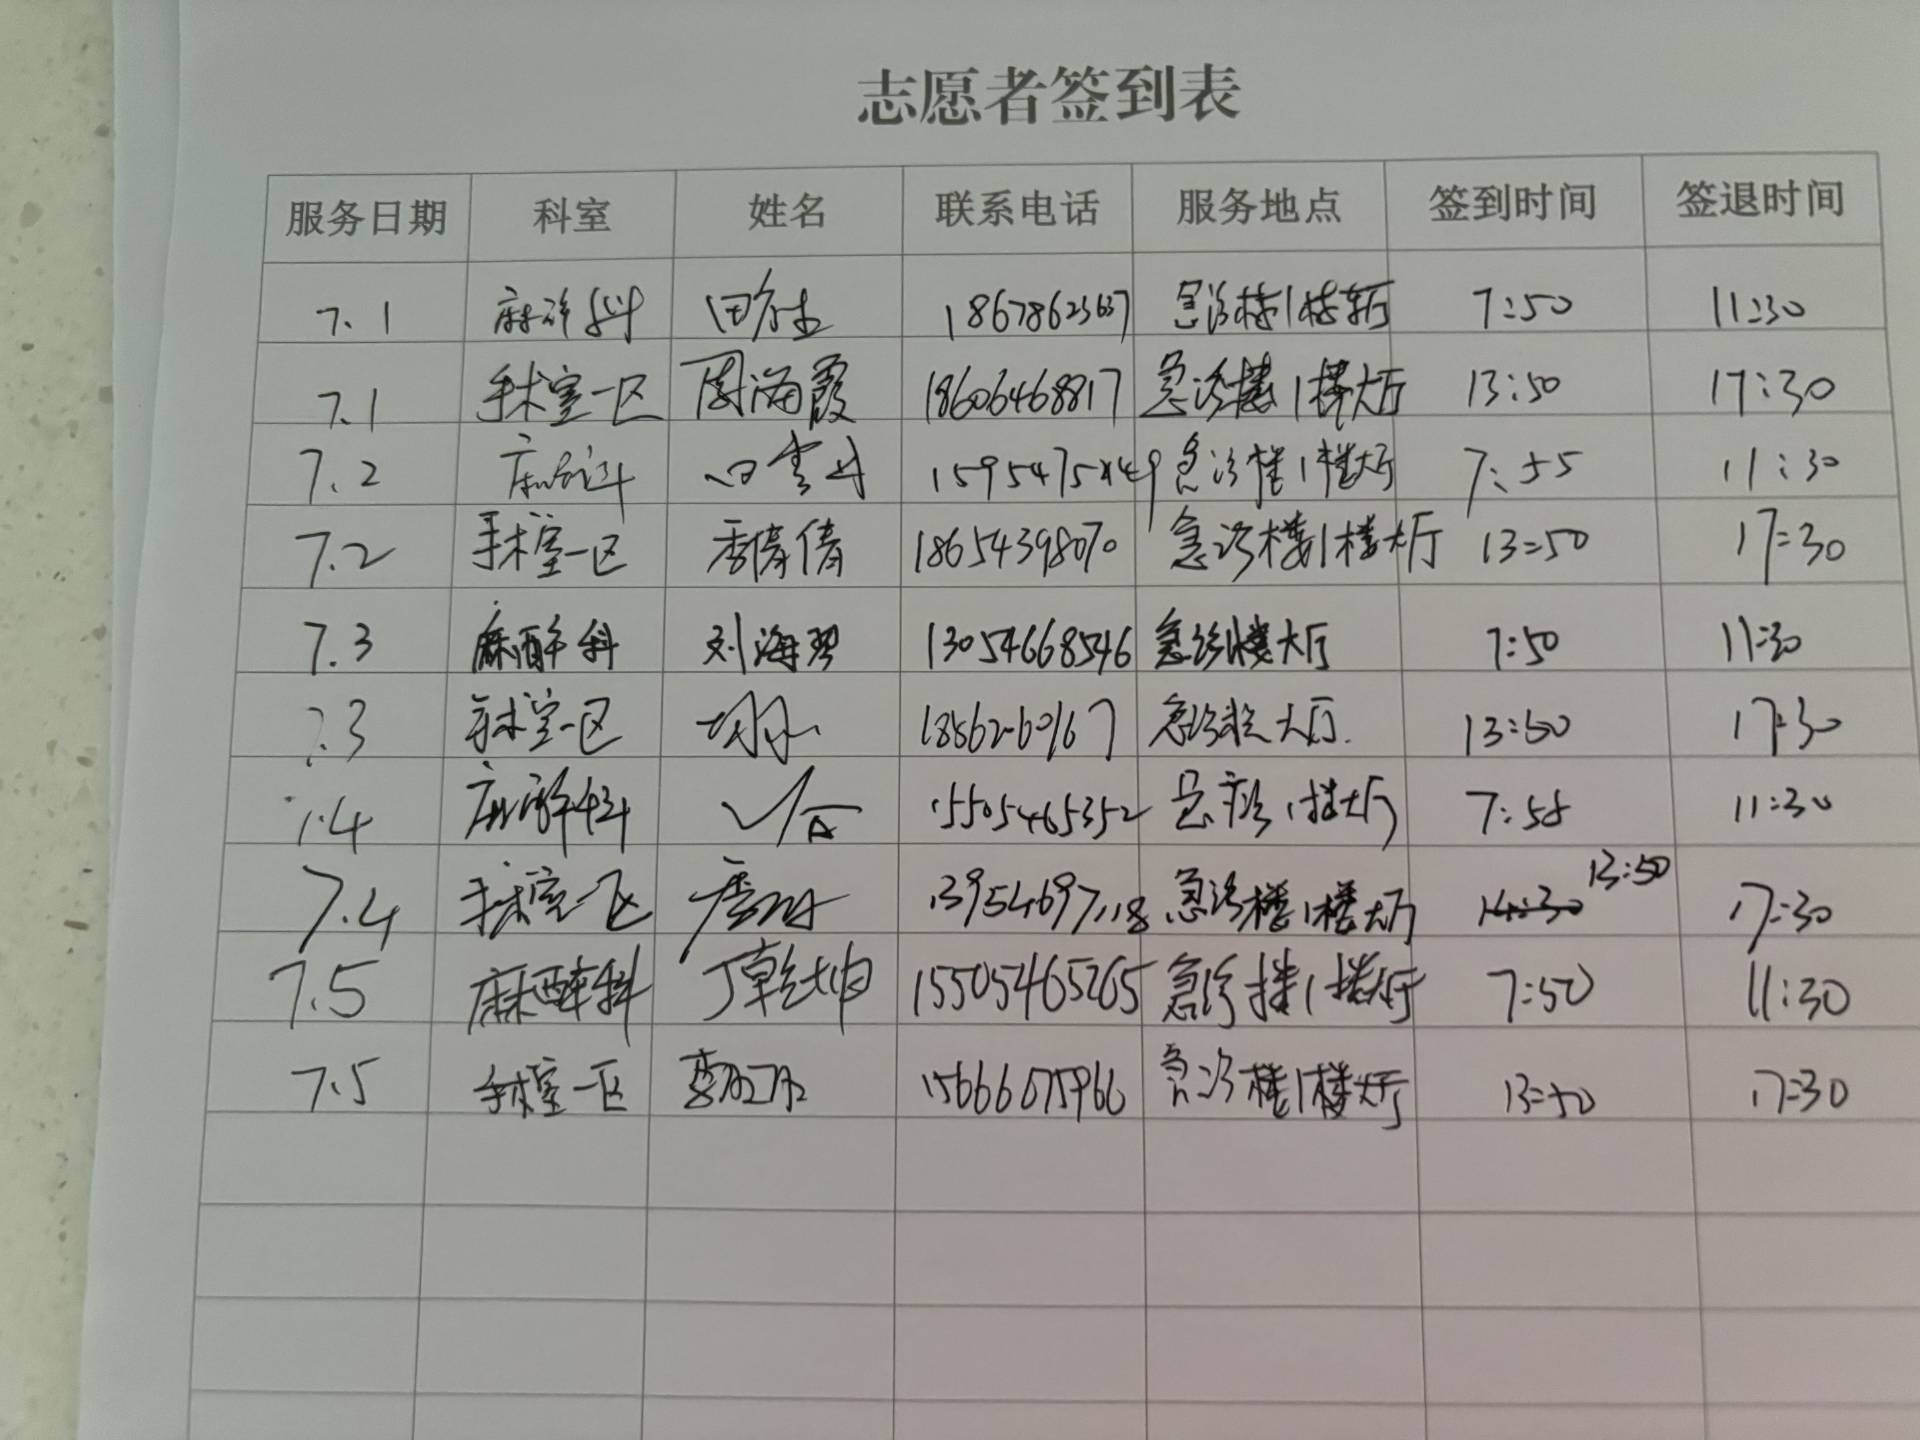 志愿者签到表
服务日期 科室 姓名 联系电话 服务地点 签到时间 签退时间
7.1 麻醉科 急诊楼1楼大厅 7:50 11:30
7.1 手术室一区 周海霞 18606468817 急诊楼1楼大厅 13:50 17:30
7.2 麻醉科 急诊楼1楼大厅 7:55 11:30
7.2 手术室一区 季倩倩 18654398070 急诊楼1楼大厅 13:50 17:30
7.3 麻醉科 刘海 13054668546 急诊楼大厅 7:50 11:30
7.3 手术室一区 急诊楼大厅 13:50 17:30
7.4 麻醉科 15505465352 急诊1楼大厅 7:55 11:30
7.4 手术室一区 急诊楼1楼大厅 14:30 13:50 17:30
7.5 麻醉科 丁乾坤 15505465265 急诊楼1楼大厅 7:50 11:30
7.5 手术室一区 15666075966 急诊楼1楼大厅 13:50 17:30